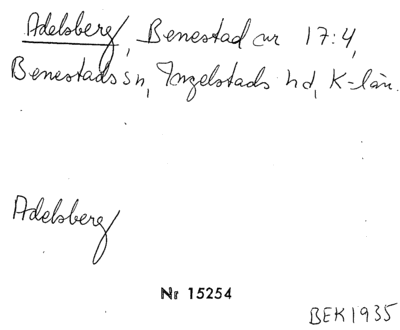 Adelsberg, Benestad nr 17:4,
Benestads sn, Ingelstads hd, K-län.
Adelsberg
Nr 15254
BEK1935